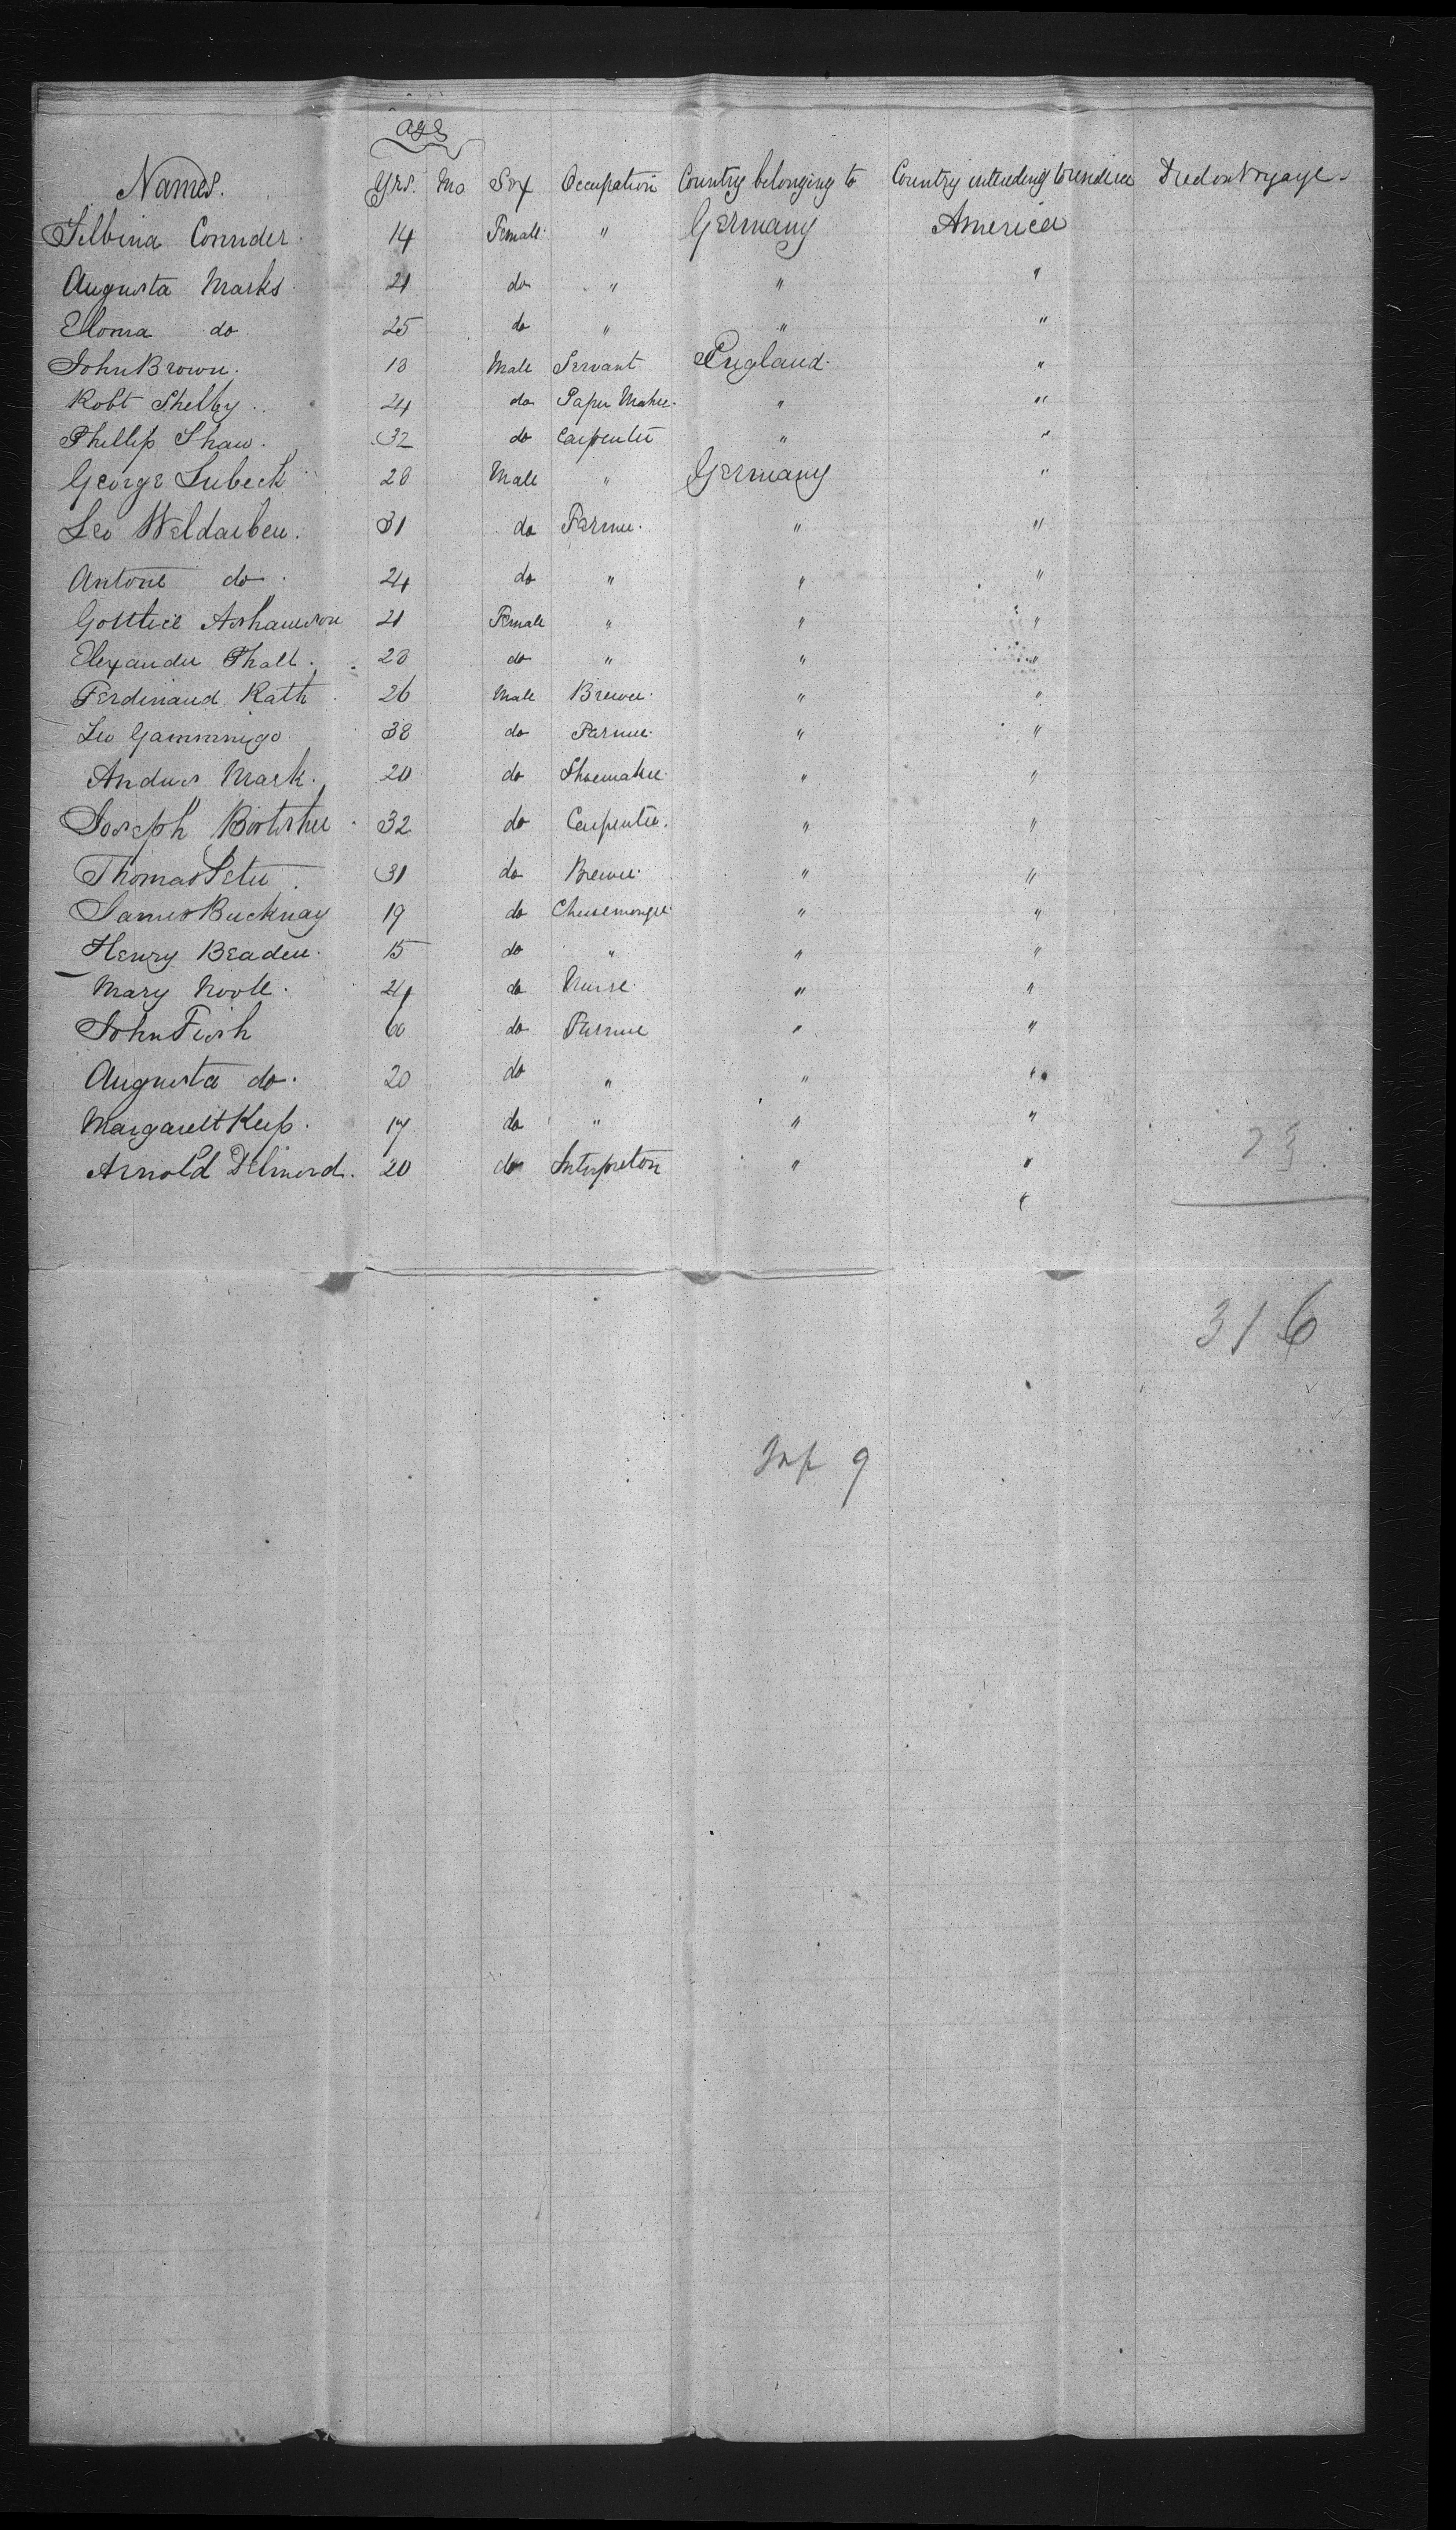 Age
Names. Yrs. Mo Sex Occupation Country belonging to Country intending to reside in Died on Voyage
Silbina Connder. 14 Female " Germany America
Augusta Marks 21 do " " "
Eloma do 25 do " " "
John Brown. 18 Male Servant England. "
Robt Shelby .. 24 do Paper Maker. " "
Phillip Shaw. 32 do Carpenter " "
George Lubeck 28 Male " Germany "
Leo Weldaiben. 31 do Farmer. " "
Antone do. 24 do " " "
Gottlieb 21 Female " " "
Elexander Thalt. 28 do " " "
Ferdinand Rath 26 Male Brewer. " "
Leo Gammnigo 38 do Farmer. " "
Andres Mark. 20 do Shoemaker. " "
Joseph Bortisher 32 do Carpenter. " "
Thomas Peter. 31 do Brewer. " "
James Bucknay 19 do Cheesemonger. " "
Henry Beaden. 15 do " " "
Mary Noole. 24 do Nurse. " "
John Fish 60 do Farmer " "
Augusta do. 20 do " " "
Margarett Keep. 17 do " " "
Arnold Delmord. 20 do Interpreton " "
"
316
Inf 9